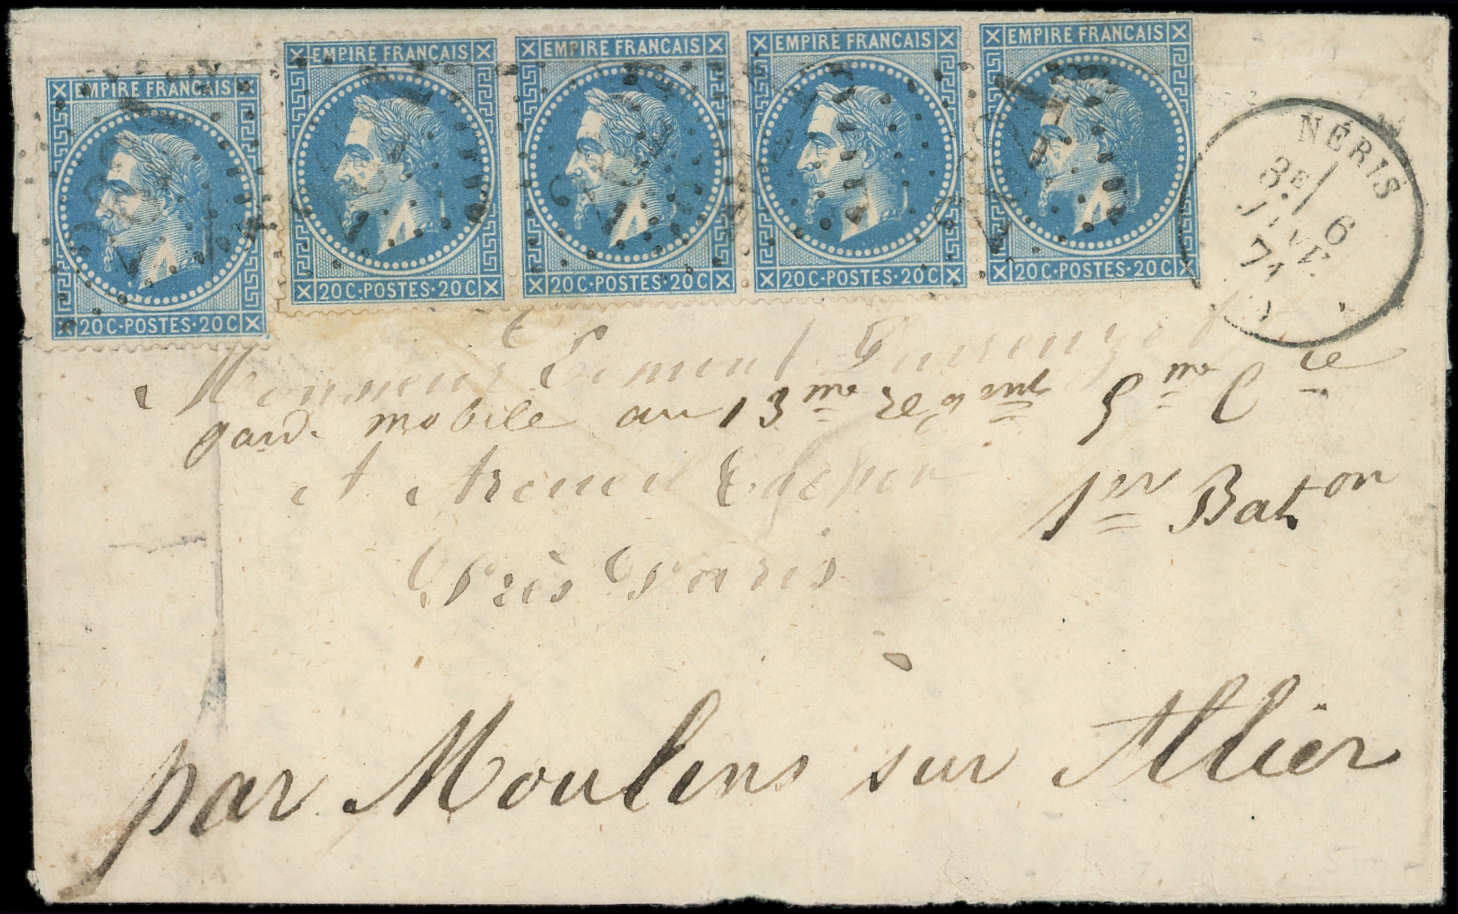 EMPIRE FRANCAIS EMPIRE FRANCAIS EMPIRE FRANCAIS EMPIRE FRANCAIS EMPIRE FRANCAIS
20C·POSTES·20C 20C·POSTES·20C 20C·POSTES·20C 20C·POSTES·20C 20C·POSTES·20C
NÉRIS
3E/
6
JANV.
71
Monsieur
gard. mobile au 13me Regmt 5me Cie
A Arcueil Cachan
1er Baton
Près Paris
par Moulins sur Allier